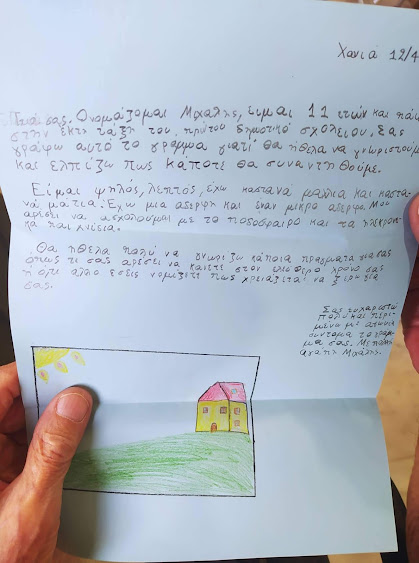 Χανιά 12/4
Γειά σας. Ονομάζομαι Μιχάλης, είμαι 11 ετών και πάω
στην έκτη τάξη του πρώτου δημοτικό σχολείου. Σας
γράφω αυτό το γράμμα γιατί θα ήθελα να γνωριστούμε
και ελπίζω πως κάποτε θα συναντηθούμε.
Είμαι ψηλός, λεπτός, έχω καστανά μαλλιά και καστα-
νά μάτια. Έχω μια αδερφή και έναν μικρό αδερφό. Μου
αρέσει να ασχολούμαι με το ποδόσφαιρο και τα ηλεκρονι-
κά παιχνίδια.
Θα ήθελα πολύ να γνωρίζω κάποια πράγματα για σας
όπως τι σας αρέσει να κάνετε στον ελεύθερο χρόνο σας
ή ότι άλλο εσείς νομίζετε πως χρειάζεται να ξέρω για
σας.
Σας ευχαριστώ
πολύ και περι-
μένω με αγωνία
σύντομα το γράμ-
μα σας. Με πολλή
αγάπη Μιχάλης.